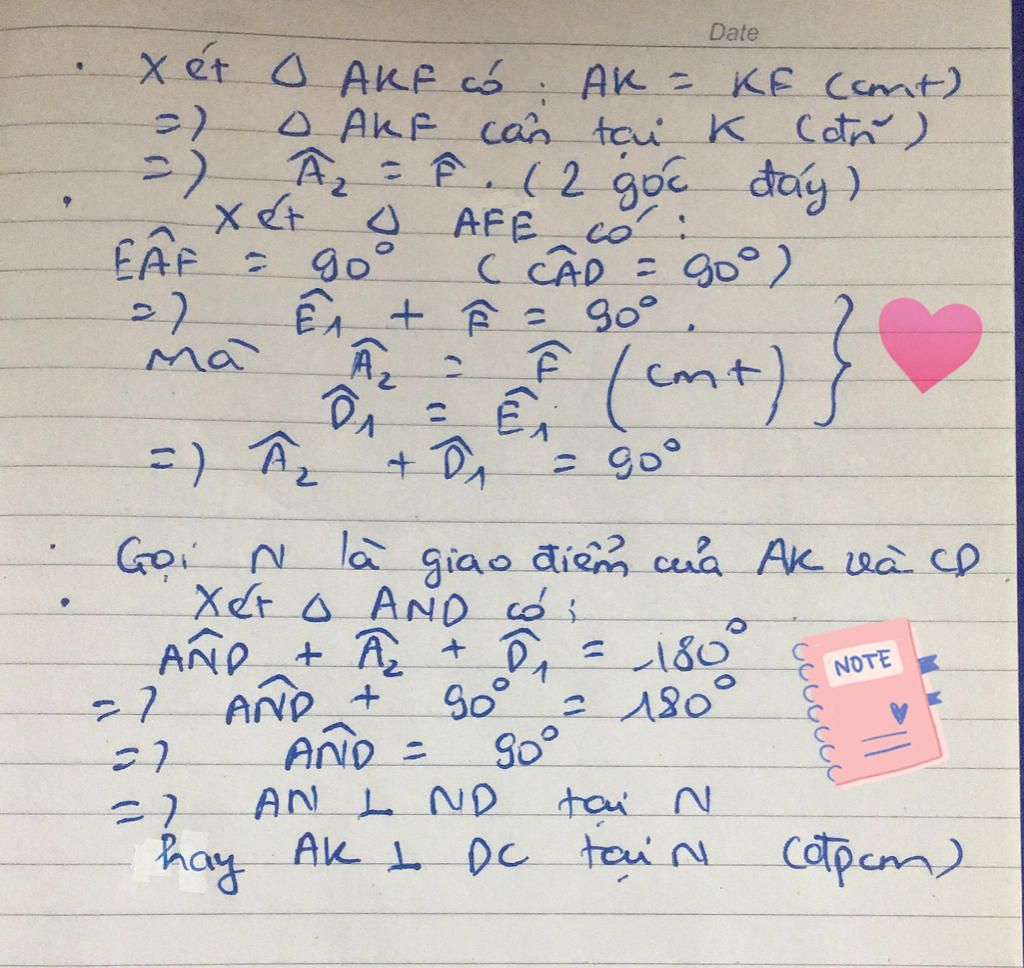 Date
• Xét Δ AKF có : AK = KF (cmt)
=> Δ AKF cân tại K (đ/n)
=> Â₂ = F̂ . (2 góc đáy)
• Xét Δ AFE có :
EÂF = 90° (CÂD = 90°)
=> Ê₁ + F̂ = 90° .
Mà Â₂ = F̂ (cmt) }
D̂₁ = Ê₁
=> Â₂ + D̂₁ = 90°
• Gọi N là giao điểm của AK và CD
• Xét Δ AND có :
AN̂D + Â₂ + D̂₁ = 180°
=> AN̂D + 90° = 180°
NOTE
=> AN̂D = 90°
=> AN ⊥ ND tại N
hay AK ⊥ DC tại N (đpcm)